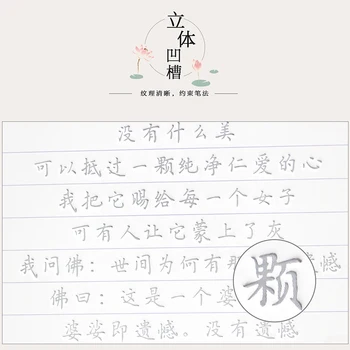 立体
凹槽
纹理清晰,约束笔法
没有什么美
可以抵过一颗纯净仁爱的心
我把它赐给每一个女子
可有人让它蒙上了灰
我问佛:世间为何有那 遗憾
佛曰:这是一个婆
颗
婆娑即遗憾。没有遗憾